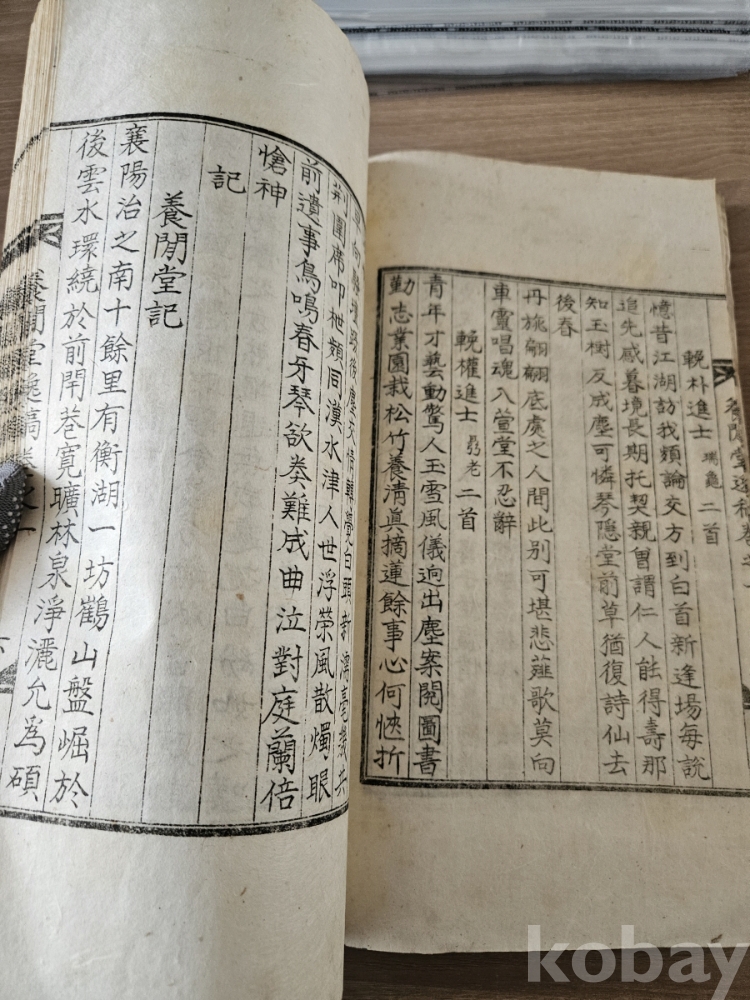 養閒堂逸稿卷之
輓朴進士 瑞龜 二首
憶昔江湖訪我頻論交方到白首新逢場每說
追先感暮境長期托契親曾謂仁人能得壽那
知玉樹反成塵可憐琴隱堂前草猶復詩仙去
後春
丹旐翩翩底處之人間此別可堪悲薤歌莫向
車靈唱魂入萱堂不忍辭
輓權進士 老 二首
青年才藝動驚人玉雪風儀逈出塵案閱圖書
勤志業園栽松竹養清眞摘蓮餘事心何愜折
後塵交情轉覺白頭新
荊圍席叩枻頻同漢水津人世浮榮風散燭眼
前遺事鳥鳴春牙琴欲奏難成曲泣對庭蘭倍
愴神
記
養閒堂記
襄陽治之南十餘里有衡湖一坊鶴山盤崛於
後雲水環繞於前閈巷寬曠林泉淨灑允爲碩
養閒堂逸稿卷之一
kobay